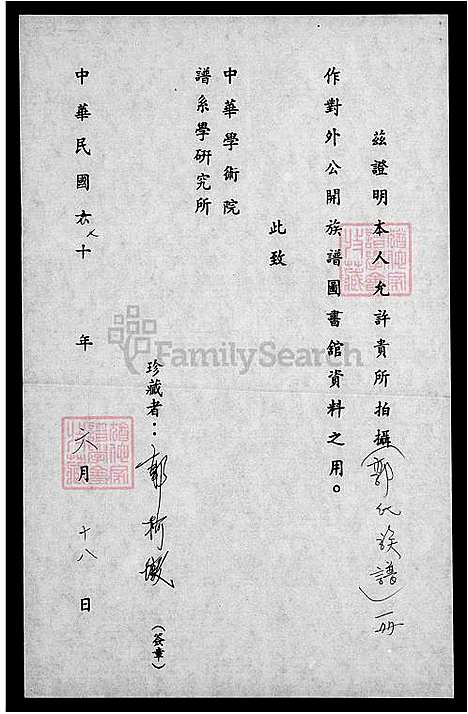 茲證明本人允許貴所拍攝(郭氏族譜)一冊
作對外公開族譜圖書館資料之用。
此致
中華學術院
譜系學研究所
珍藏者：郭柯
(簽章)
中華民國六十年六月十八日
FamilySearch